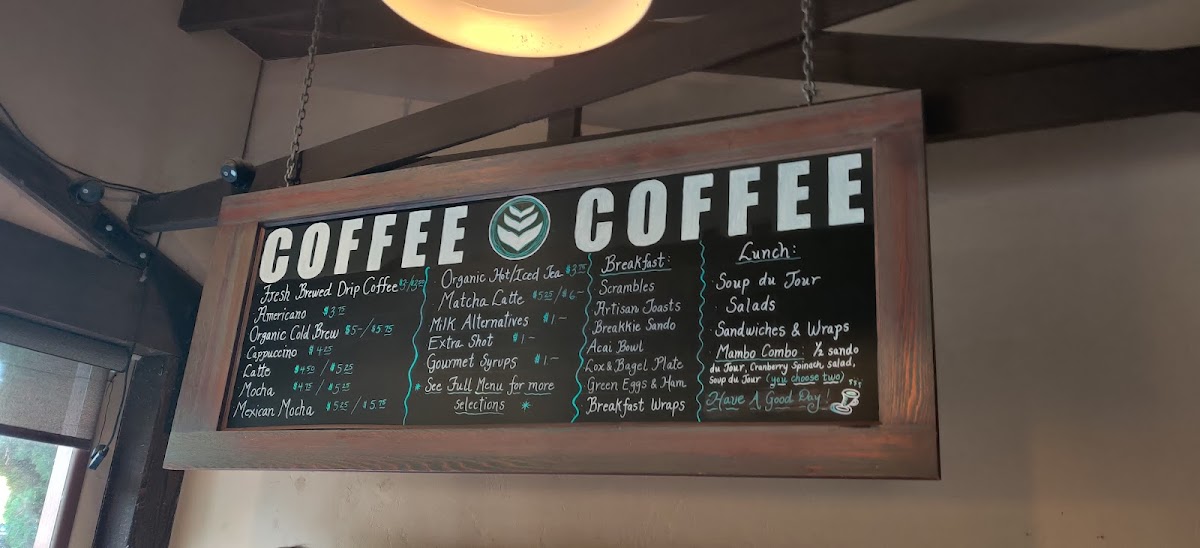 COFFEE COFFEE
Fresh Brewed Drip Coffee
Americano $3.75
Organic Cold Brew $5-/$5.75
Cappuccino $4.25
Latte $4.50/$5.25
Mocha $4.75/$5.25
Mexican Mocha $5.25/$5.75
Organic Hot/Iced Tea $3.75
Matcha Latte $5.25/$6-
Milk Alternatives $1-
Extra Shot $1-
Gourmet Syrups $1-
* See Full Menu for more
selections *
Breakfast:
Scrambles
Artisan Toasts
Breakkie Sando
Acai Bowl
Lox & Bagel Plate
Green Eggs & Ham
Breakfast Wraps
Lunch:
Soup du Jour
Salads
Sandwiches & Wraps
Mambo Combo: 1/2 sando
du Jour, Cranberry Spinach salad,
Soup du Jour (you choose two)
Have A Good Day!